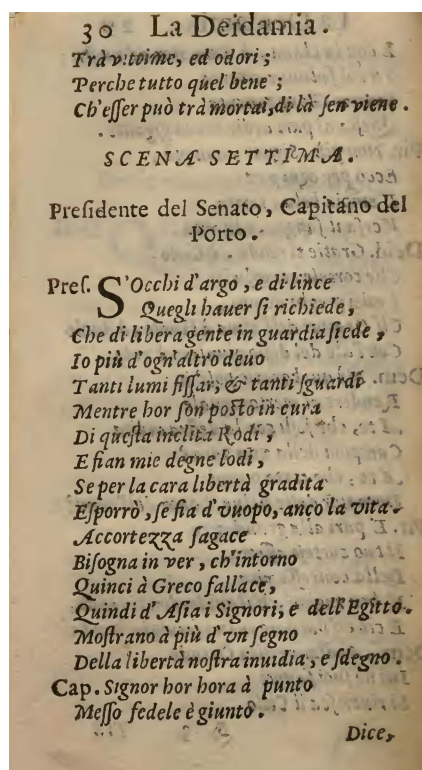 30 La Deidamia.
Trà vittime, ed odori;
Perche tutto quel bene;
Ch'esser può trà mortai, di là sen viene.
SCENA SETTIMA.
Presidente del Senato, Capitano del
Porto.
Pres. S'Occhi d'argo, e di lince
Quegli hauer si richiede,
Che di libera gente in guardia siede,
Io più d'ogn'altro deuo
Tanti lumi fissar, & tanti sguardi
Mentre hor son posto in cura
Di questa inclita Rodi,
E fian mie degne lodi,
Se per la cara libertà gradita
Esporrò, se fia d'vuopo, anco la vita.
Accortezza sagace
Bisogna in ver, ch'intorno
Quinci à Greco fallace,
Quindi d'Asia i Signori, e dell'Egitto.
Mostrano à più d'vn segno
Della libertà nostra inuidia, e sdegno.
Cap. Signor hor hora à punto
Messo fedele è giunto.
Dice,